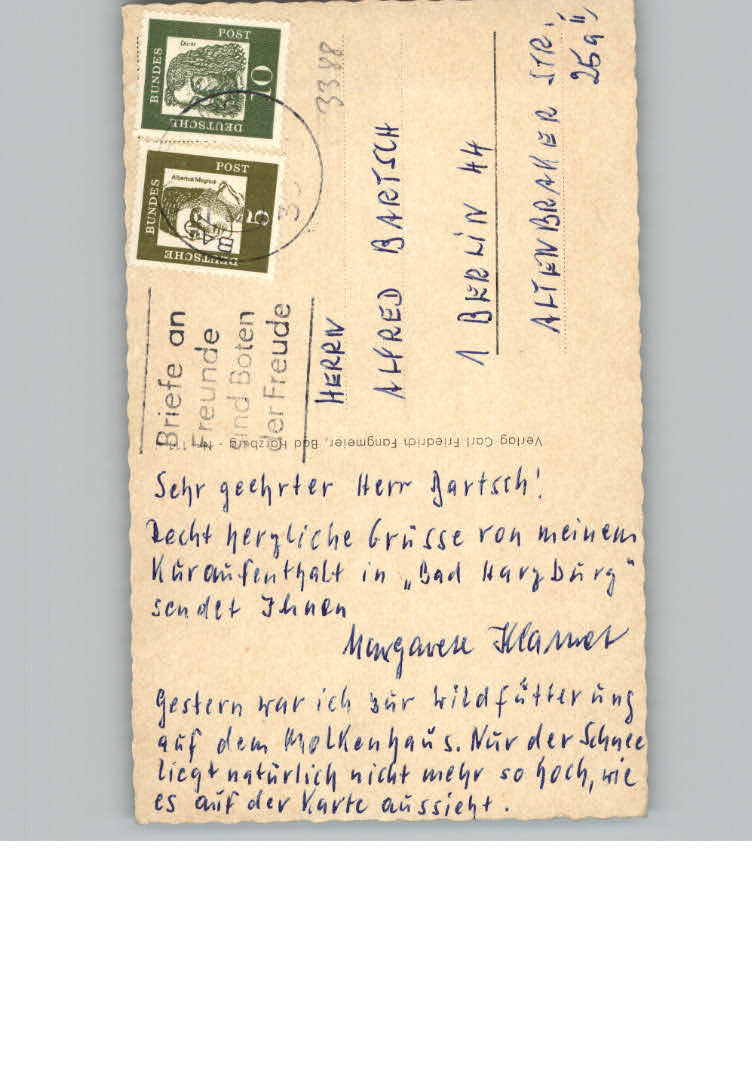 DEUTSCHE
BUNDES
POST
10
Dürer
DEUTSCHE
BUNDES
POST
5
Albertus Magnus
3388
Briefe an
Freunde
sind Boten
der Freude
HERRN
ALFRED BARTSCH
1 BERLIN 44
ALTENBRAKER STR.
26a II
Verlag Carl Friedrich Fangmeier, Bad Harzburg - Nr.
Sehr geehrter Herr Bartsch!
Recht herzliche Grüsse von meinem
Kuraufenthalt in „Bad Harzburg“
sendet Ihnen
Margarete
Gestern war ich zur Wildfütterung
auf dem Molkenhaus. Nur der Schnee
liegt natürlich nicht mehr so hoch, wie
es auf der Karte aussieht.